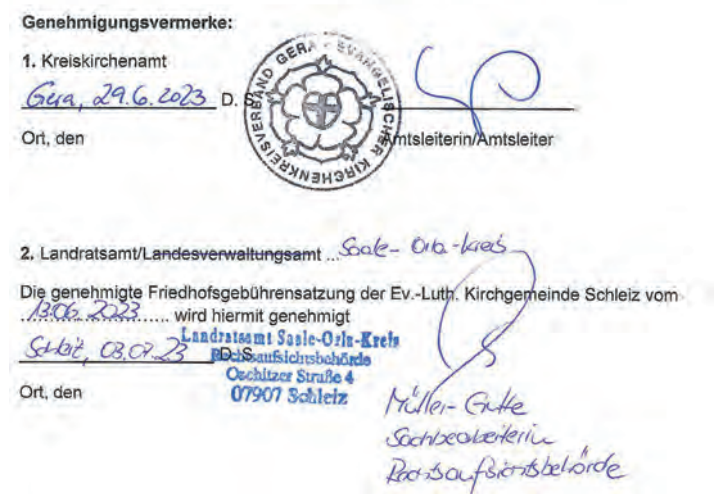 Genehmigungsvermerke:
1. Kreiskirchenamt
Gera, 29.6.2023 D. S.
EVANGELISCHER KIRCHENKREISVERBAND GERA
Ort, den Amtsleiterin/Amtsleiter
2. Landratsamt/Landesverwaltungsamt ... Saale-Orla-Kreis
Die genehmigte Friedhofsgebührensatzung der Ev.-Luth. Kirchgemeinde Schleiz vom
13.06.2023 wird hiermit genehmigt
Landratsamt Saale-Orla-Kreis
Schleiz, 03.07.23 D. S.
Rechtsaufsichtsbehörde
Oschitzer Straße 4
07907 Schleiz
Ort, den
Müller-Gütte
Sachbearbeiterin
Rechtsaufsichtsbehörde